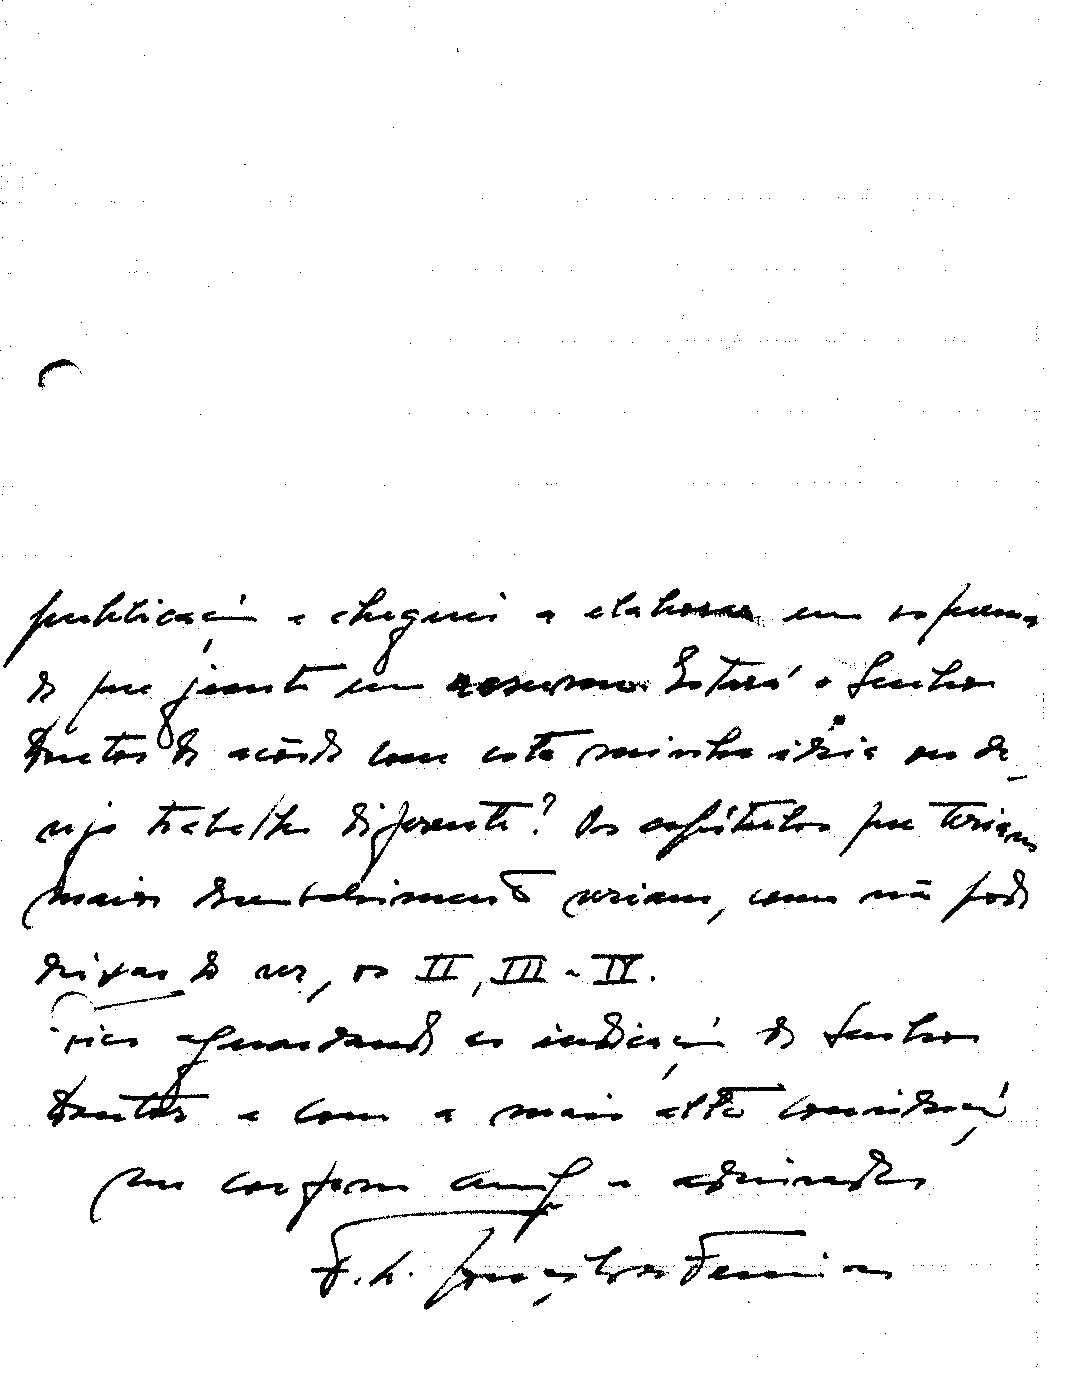 publicação e cheguei a elaborar um esquema
de que junto um resumo. Estará o Senhor
Doutor de acôrdo com esta minha idéia ou de-
seja trabalho diferente? Os capítulos que teriam
maior desenvolvimento seriam, como não podia
deixar de ser, os II, III e IV.
Fico aguardando a indicação do Senhor
Doutor e com a mais alta consideração
sou confrade amigo e admirador
F. L. Gonçalves Ferreira